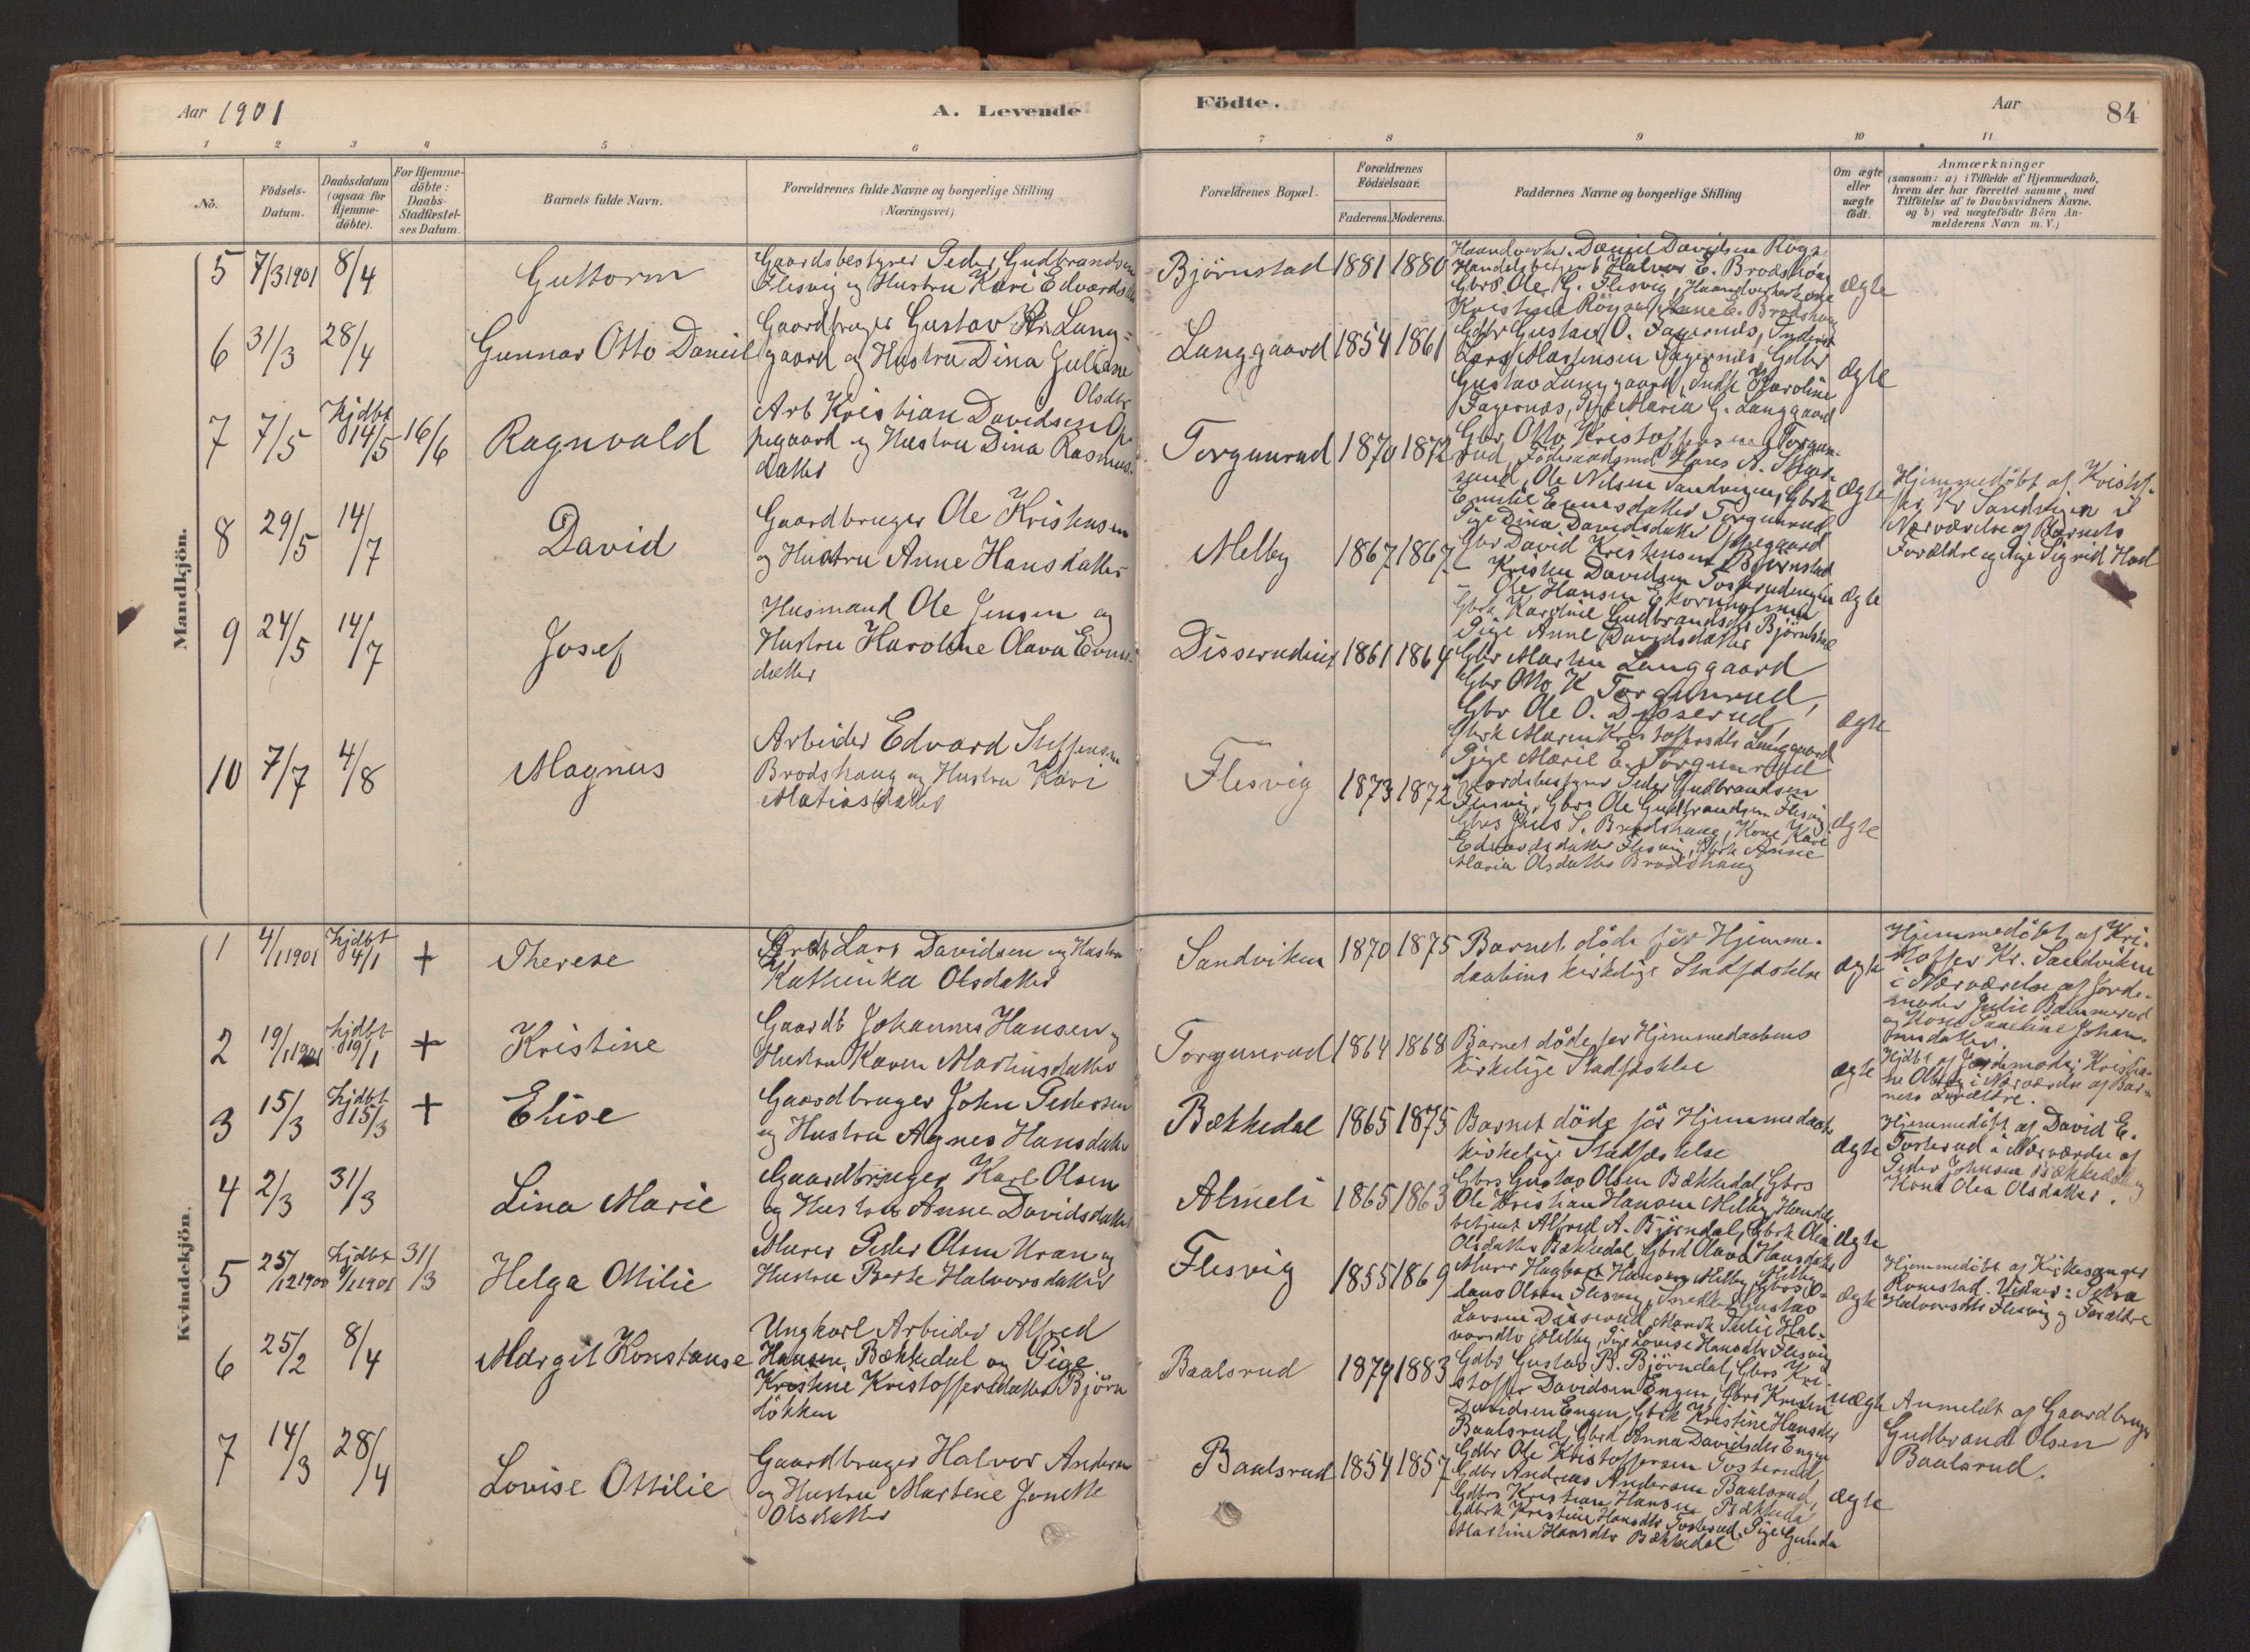 Aar 1901
A. Levende
Födte.
Aar
84
1 2 3 4 5 6 7 8 9 10 11
No.
Födsels-
Datum.
Daabsdatum
(ogsaa for
Hjemme-
döbte).
For Hjemme-
döbte:
Daabs-
Stadfæstel-
ses Datum.
Barnets fulde Navn.
Forældrenes fulde Navne og borgerlige Stilling
(Næringsvei)
Forældrenes Bopæl.
Forældrenes
Födselsaar.
Faderens. Moderens.
Faddernes Navne og borgerlige Stilling
Om ægte
eller
uægte
födt.
Anmærkninger
(saasom: a) i Tilfælde af Hjemmedaab,
hvem der har forrettet samme, med
Tilföielse af to Daabsvidners Navne,
og b) ved uægtefödte Börn An-
melderens Navn m. V.)
Mandkjön.
5 7/3 1901 8/4 Guttorm
Gaardsbestyrer Peder Gudbrandsen
Flesvig og Hustru Kari Edvardsdtr
Bjørnstad 1881 1880
Haandverker Daniel Davidsen
Handelsbetjent Halvor E. Brodshaug
Gbrs Ole G. Flesvig, Haandverkerkone
Kristine Anne E. Brodshaug
ægte
6 31/3 28/4 Gunnar Otto Daniel
Gaardbruger Gustav Lang-
gaard og Hustru Dina Juliane
Olsdtr
Langgaard 1854 1861
Gdbr Gustav O. Fagernæs,
Lars Martensen Fagernæs, Gdbr
Gustav Langgaard, Karoline
Fagernæs, Pige Maria G. Langgaard
ægte
7 7/5 Hjdbt 14/5 16/6 Ragnvald
Arb Kristian Davidsen Op-
pegaard og Hustru Dina Rasmus-
datter
Torgunrud 1870 1872
Gbr Otto Kristoffersen Torgun-
rud, Föderaadsmd Hans A.
Ole Nilsen Sandvigen, Gbrk
Emilie Evensdatter Torgunrud
Pige Dina Davidsdatter Oppegaard
ægte
Hjemmedöbt af Kristof-
fer Kr Sandvigen i
Nærværelse af Barnets
Forældre og Pige Sigrid
8 29/5 14/7 David
Gaardbruger Ole Kristensen
og Hustru Anne Hansdatter
Melby 1867 1867
Gbr David Kristensen Bjørnstad
- Kristen Davidsen
- Ole Hansen
Gbrk Karoline Gudbrandsdtr Bjørnstad
Pige Anne Davidsdatter
ægte
9 24/5 14/7 Josef
Husmand Ole Jensen og
Hustru Karoline Olava Evens-
datter
Disserudeiet 1861 1864
Gbr Martin Langgaard
Gbr Otto K Torgunrud,
Gbr Ole O. Disserud,
Gbrk Maren Kristoffersdtr Langgaard
Pige Marie E. Torgunrud
ægte
10 7/7 4/8 Magnus
Arbeider Edvard Steffensen
Brodshaug og Hustru Kari
Matiasdatter
Flesvig 1873 1872
Gaardsbestyrer Peder Gudbrandsen
Flesvig, Gbrs Ole Gudbrandsen Flesvig
Gbrs Jens S. Brodshaug, Kone Kari
Edvardsdatter Flesvig, Gbrk Anne
Maria Olsdatter Brodshaug
ægte
Kvindekjön.
1 4/1 1901 Hjdbt 4/1 + Therese
Lars Davidsen og Hustru
Kathinka Olsdatter
Sandviken 1870 1875
Barnet döde för Hjemme-
daabens kirkelige Stadfæstelse
ægte
Hjemmedöbt af Kri-
stoffer Kr. Sandviken
i Nærværelse af Jorde-
moder Julie
og Kone Johan-
nesdatter.
2 19/1 1901 Hjdbt 19/1 + Kristine
Gaardb Johannes Hansen og
Hustru Karen Martinsdatter
Torgunrud 1864 1868
Barnet döde för Hjemmedaabens
kirkelige Stadfæstelse
ægte
Hjdbt af Jordemoder Kristia-
ne i Nærværelse af Bar-
nets Forældre.
3 15/3 Hjdbt 15/3 + Elise
Gaardbruger John Pedersen
og Hustru Agnes Hansdatter
Bækkedal 1865 1875
Barnet döde för Hjemmedaabs
kirkelige Stadfæstelse
ægte
Hjemmedöbt af David E.
Tosterud i Nærværelse af
Peder Johnsen Bækkedal og
Kone Olea Olsdatter.
4 2/3 31/3 Lina Marie
Gaardbruger Karl Olsen
og Hustru Anne Davidsdatter
Almeli 1865 1863
Gbrs Gustav Olsen Bækkedal, Gbrs
Ole Kristian Hansen Melby, Handels-
betjent Alfred A. Björndal, Gbrk Olia
Olsdatter Bækkedal, Gbrd Olava Hansdatter
Melby
ægte
5 25/12 1900 Hjdbt 1/1 1901 31/3 Helga Ottilie
Murer Peder Olsen Uran og
Hustru Berte Halvorsdatter
Flesvig 1855 1869
Murer Hagbart Hansen Melby, Gbrs
Olsen Flesvig, Gustav
Larsen Disserud, Murerk Julie Hal-
vorsdtr Melby, Pige Lovise Hansdtr Flesvig
ægte
Hjemmedöbt af Kirkesanger
Romstad. Vidner: Petra
Halvorsdtr Flesvig og Forældre
6 25/2 8/4 Margit Konstanse
Ungkarl Arbeider Alfred
Hansen Bækkedal og Pige
Kristine Kristoffersdatter Björn
lökken
Baalsrud 1879 1883
Gdbr Gustav B. Björndal, Gbrs Kri-
stoffer Davidsen Engen, Gbrs Kristen
Davidsen Engen, Gbrk Kristine Hansdtr
Baalsrud, Gbrd Anna Davidsdtr Engen
uægte
Anmeldt af Gaardbruger
Gudbrand Olsen
Baalsrud.
7 14/3 28/4 Lovise Ottilie
Gaardbruger Halvor Andersen
og Hustru Martene Jonette
Olsdatter
Baalsrud 1854 1857
Gdbr Ole Kristoffersen Tosterud,
Gdbr Andreas Andersen Baalsrud,
Gdbrs Kristian Hansen Bækkedal
Gdbrk Kristine Hansdtr Tosterud, Pige Gunda
Martine Hansdtr Bækkedal
ægte